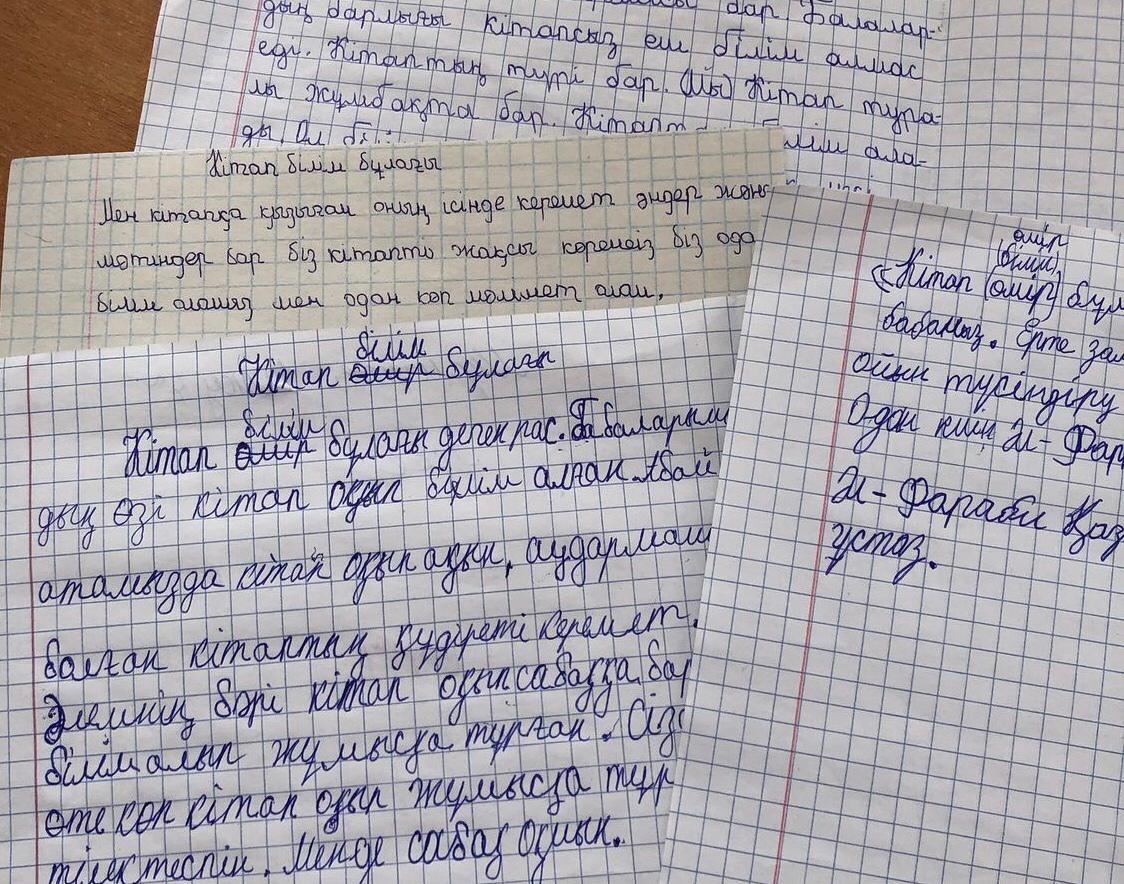 дың барлығы кітапсыз еш білім алмас
еді. Кітаптың түрі бар. (Шы) Кітап тура-
лы жұмбақта бар. Кітапт
ды. Ол білім ала-
Кітап білім бұлағы
Мен кітапқа қызығам оның ісінде керемет әндер және
мәтіндер бар біз кітапты жақсы көреміз біз ода
білім аламыз мен одан көп мәлімет алам.
білім
Кітап өмір бұлағы
білім
Кітап өмір бұлағы деген рас. Бабаларымы
дың өзі кітап оқып білім алған. Абай
атамызда кітап оқып ақын, аудармашы
болған кітаптың құдіреті керемет.
Әлемнің бәрі кітап оқып сабаққа бар
білім алып жұмысқа тұрған. Сізг
өте көп кітап оқып жұмысқа тұр
тілектеспін. Менде сабақ оқимын.
өмір
(білім)
«Кітап (өмір) бұл
бабамыз. Ерте за
ойын түсіндіру
Одан кейін Әл-Фар
Әл-Фараби Қаз
ұстаз.